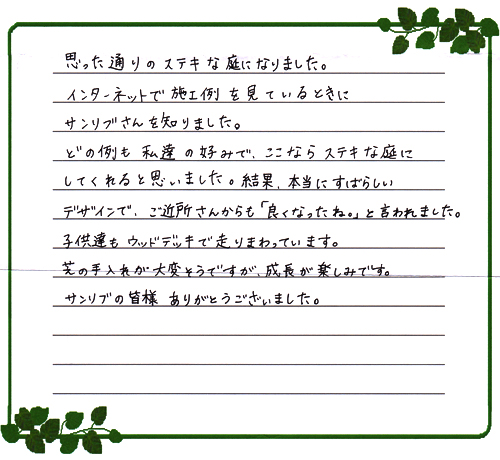 思った通りのステキな庭になりました。
インターネットで施工例を見ているときに
サンリブさんを知りました。
どの例も私達の好みで、ここならステキな庭に
してくれると思いました。結果、本当にすばらしい
デザインで、ご近所さんからも「良くなったね。」と言われました。
子供達もウッドデッキで走りまわっています。
芝の手入れが大変そうですが、成長が楽しみです。
サンリブの皆様 ありがとうございました。